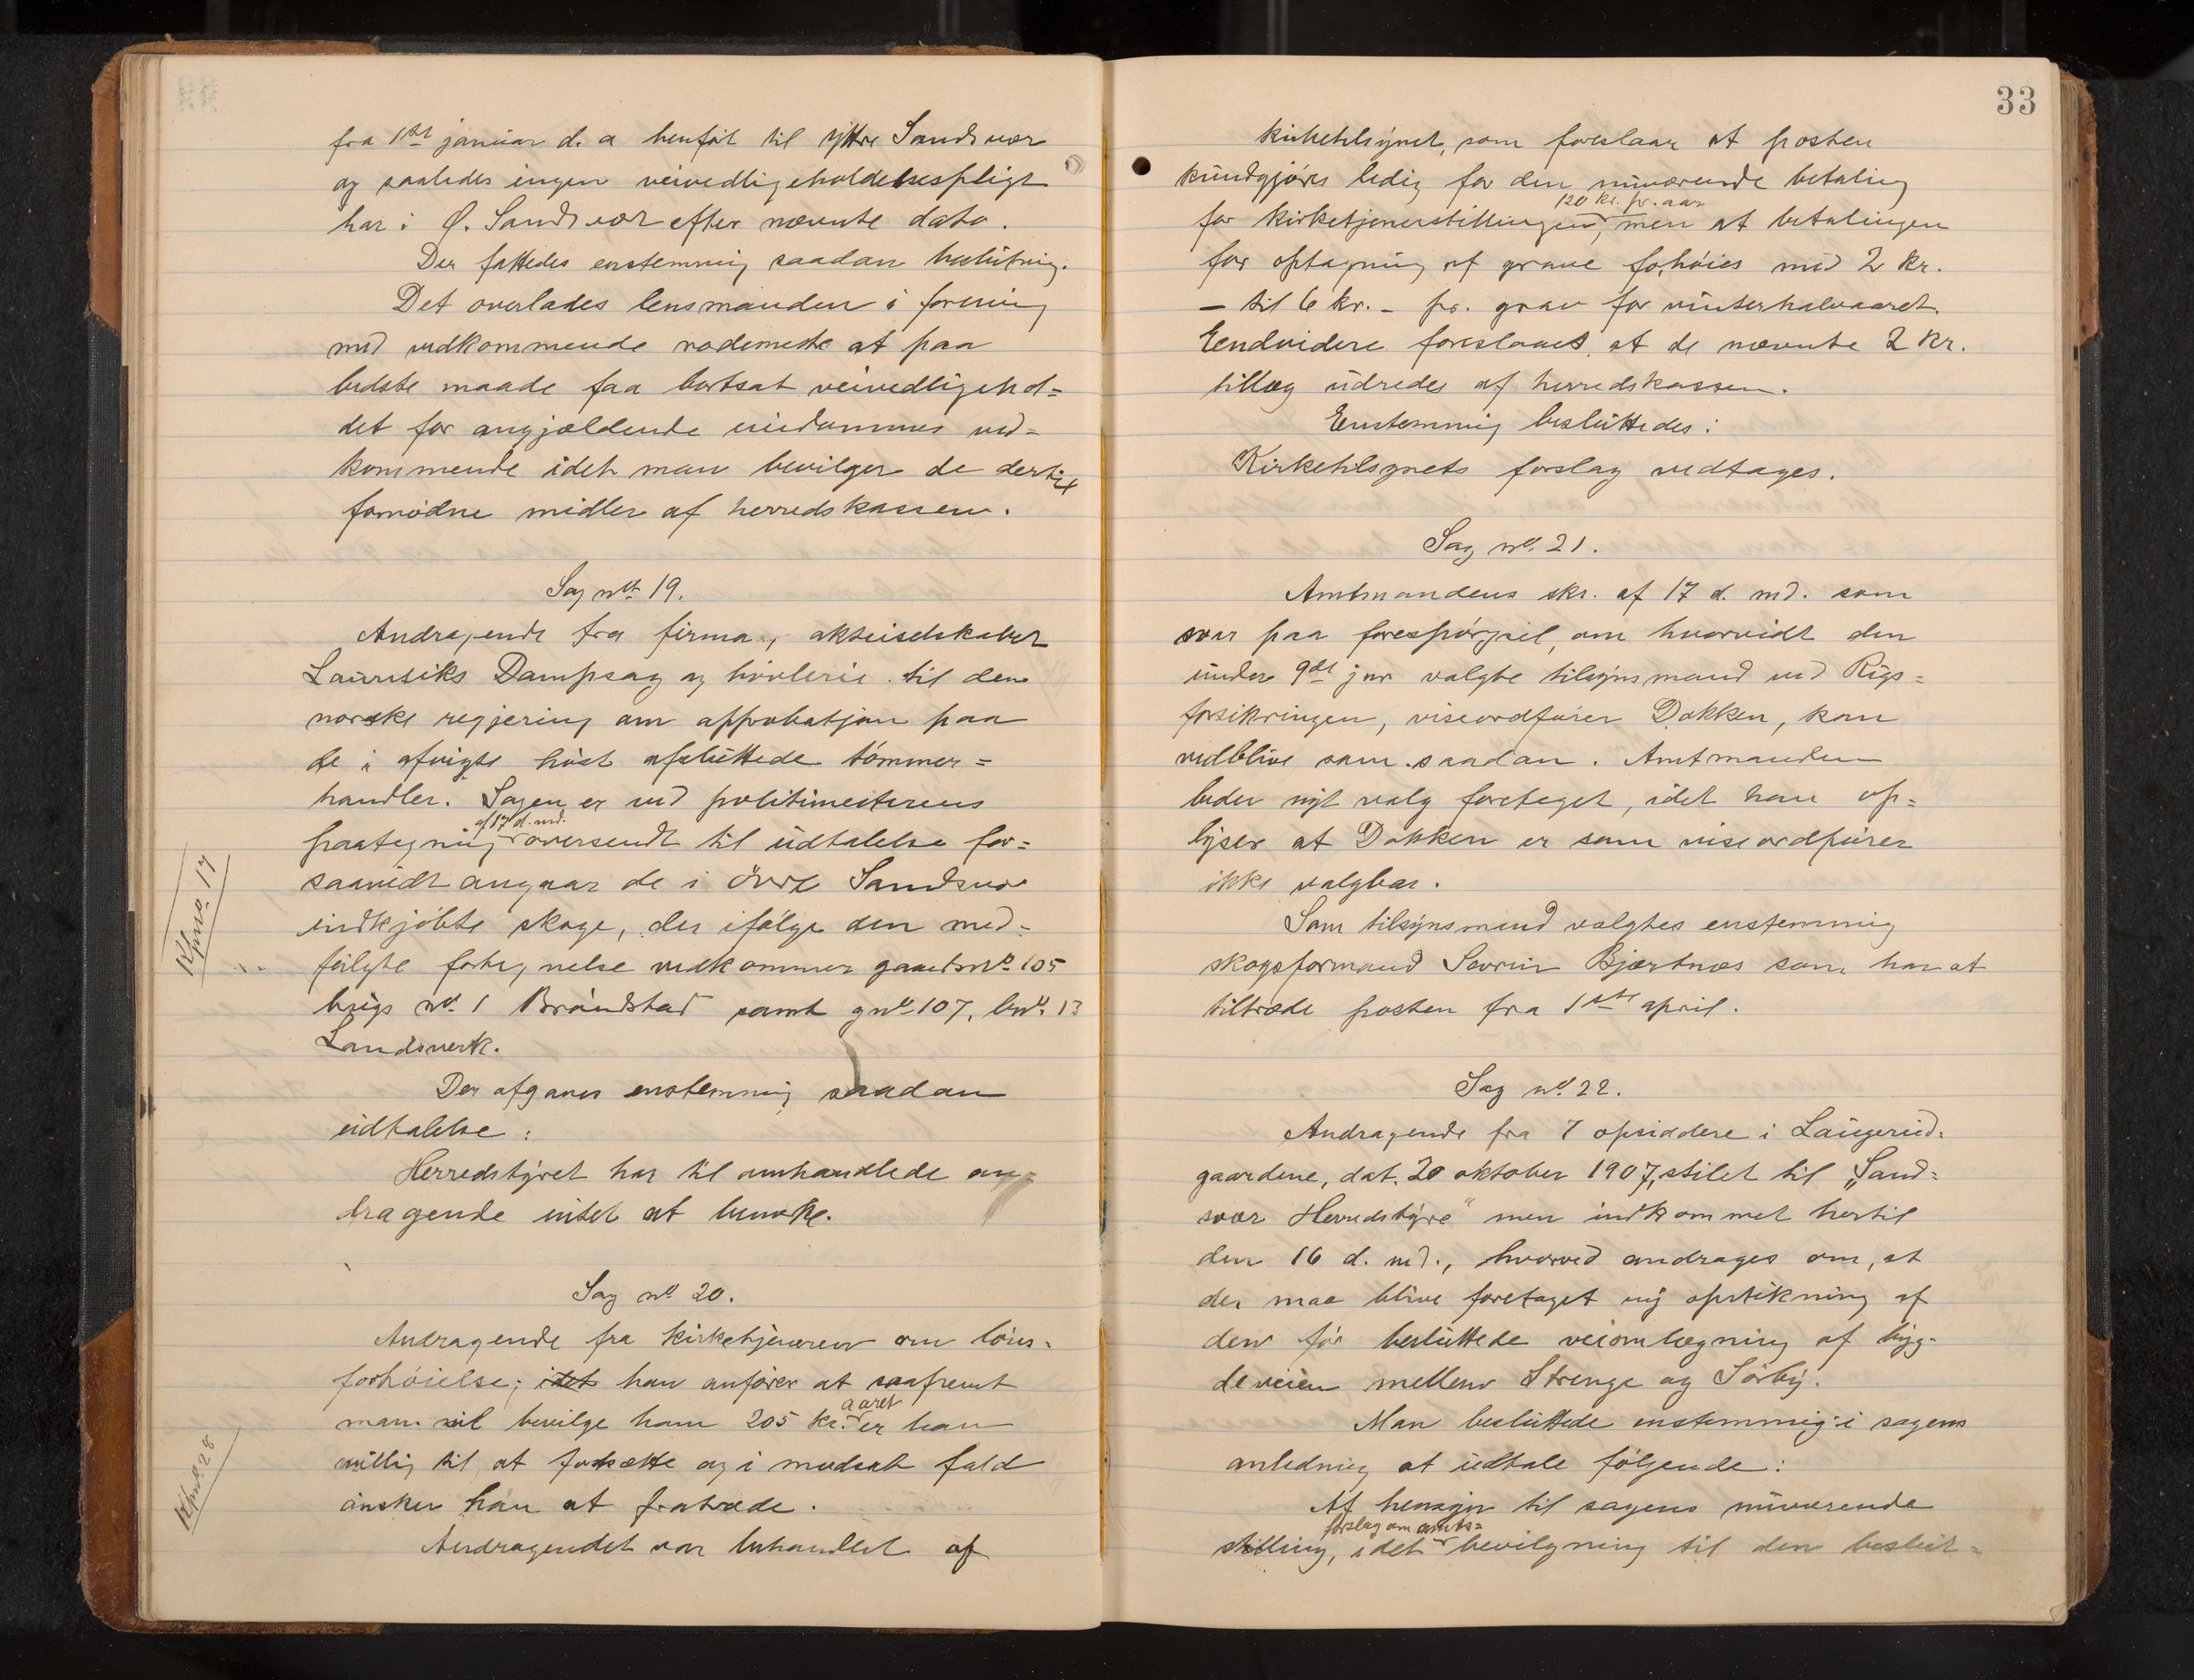 fra 1ste januar d. a henført til Yttre Sandsvær
og saaledes ingen veivedligeholdelsespligt
har i Ø. Sandsvær efter nævnte dato.
Der fattedes enstemmig saadan beslutning:
Det overlades lensmanden i forening
med vedkommende rodemestre at paa
bedste maade faa bortsat veivedligehol=
det for angjældende eiendommes ved=
kommende idet man bevilger de dertil
fornødne midler af herredskassen.
Sag no 19.
Andragende fra firma, aktieselskabet
Laurvigs Dampsag og høvleri til den
norske regjering om approbatjon paa
de i afvigte høst afsluttede tømmer=
handler. Sagen er ved politimesterens
paategning af 17 d. md. oversendt til udtalelse for=
saavidt angaar de i øvre Sandsvær
indkjøbte skoge, der ifølge den med=
fulgte fortegnelse vedkommer gaardsno 105
brugs no 1 Brøndstad samt gno 107, bno 13
Landsverk.
Der afgaves enstemmig saadan
udtalelse:
Herredstyret har til omhandlede an=
dragende intet at bemerke.
Sag no 20.
Andragende fra kirketjeneren om løns=
forhøielse; idet han anfører at saafremt
man vil bevilge ham 205 kr. aaret er han
villig til at fortsætte og i modsat fald
ønsker han at fratræde.
Andragendet var behandlet af
Kpno. 17
Kpno. 28
33
kirketilsynet, som foreslaar at posten
kundgjøres ledig for den nuværende betaling
for kirketjenerstillingen, 120 kr. pr. aar men at betalingen
for optagning af grave forhøies med 2 kr.
– til 6 kr. – pr. grav for vinterhalvaaret.
Eendvidere foreslaaes, at de nævnte 2 kr.
tillæg udredes af herredskassen.
Enstemmig besluttedes:
Kirketilsynets forslag vedtages.
Sag no 21.
Amtmandens skr. af 17 d. md. som
svar paa forespørgsel, om hvorvidt den
under 9de jan valgte tilsynsmand ved Rigs=
forsikringen, viseordfører Dokken, kan
vedblive som saadan. Amtmanden
beder nyt valg foretaget, idet han op=
lyser at Dokken er som viseordfører
ikke valgbar.
Som tilsynsmand valgtes enstemmig
skogsformand Sevrin Bjørtnæs som har at
tiltræde posten fra 1ste april.
Sag no 22.
Andragende fra 7 opsiddere i Laugerud=
gaardene, dat. 20 oktober 1907, stilet til „Sand=
svær Herredstyre“ men indkommet hertil
den 16 d. md., hvorved andrages om, at
der maa blive foretaget ny opstikning af
den før besluttede veiomlægning af byg=
deveien mellem Strenge og Sørby.
Man besluttede enstemmig i sagens
anledning at udtale følgende:
Af hensyn til sagens nuværende
stilling, idet forslag om amts= bevilgning til den beslut=